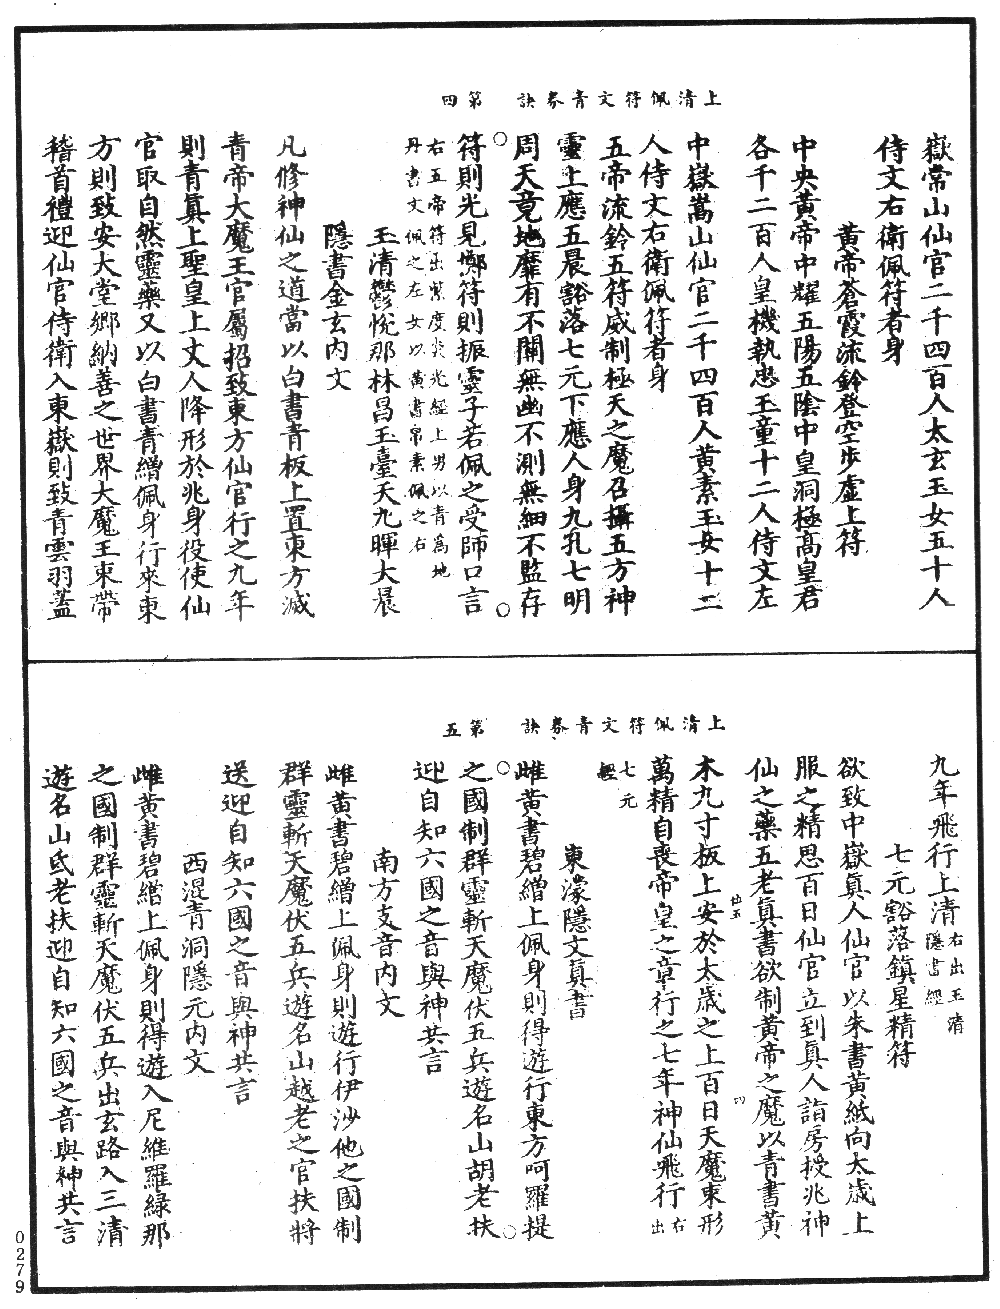 上清佩符文青券訣　第四
嶽常山仙官二千四百人太玄玉女五十人
侍文右衛佩符者身
黃帝蒼霞流鈴登空步虛上符
中央黃帝中耀五陽五陰中皇洞極高皇君
各千二百人皇機執忠玉童十二人侍文左
中嶽嵩山仙官二千四百人黃素玉女十二
人侍文右衛佩符者身
五帝流鈴五符威制極天之魔召攝五方神
靈上應五晨豁落七元下應人身九孔七明
周天竟地靡有不關無幽不測無細不監存
符則光見擲符則振靈子若佩之受師口言
右五帝符出紫度炎光經上男以青為地
丹書文佩之左女以黃書帛素佩之右
玉清鬱悅那林昌玉臺天九暉大晨
隱書金玄內文
凡修神仙之道當以白書青板上置東方滅
青帝大魔王官屬招致東方仙官行之九年
則青真上聖皇上丈人降形於兆身役使仙
官取自然靈藥又以白書青繒佩身行來東
方則致安大堂鄉納善之世界大魔王束帶
稽首禮迎仙官侍衛入東嶽則致青雲羽蓋
上清佩符文青券訣　第五
九年飛行上清右出玉清隱書經
七元豁落鎮星精符
欲致中嶽真人仙官以朱書黃紙向太歲上
服之精思百日仙官立到真人詣房授兆神
仙之藥五老真書欲制黃帝之魔以青書黃
出五
四
木九寸板上安於太歲之上百日天魔束形
萬精自喪帝皇之章行之七年神仙飛行右出
七元經
東濛隱文真書
雌黃書碧繒上佩身則得遊行東方呵羅提
之國制群靈斬天魔伏五兵遊名山胡老扶
迎自知六國之音與神共言
南方支音內文
雌黃書碧繒上佩身則遊行伊沙他之國制
群靈斬天魔伏五兵遊名山越老之官扶將
送迎自知六國之音與神共言
西混青洞隱元內文
雌黃書碧繒上佩身則得遊入尼維羅綠那
之國制群靈斬天魔伏五兵出玄路入三清
遊名山氐老扶迎自知六國之音與神共言
0279